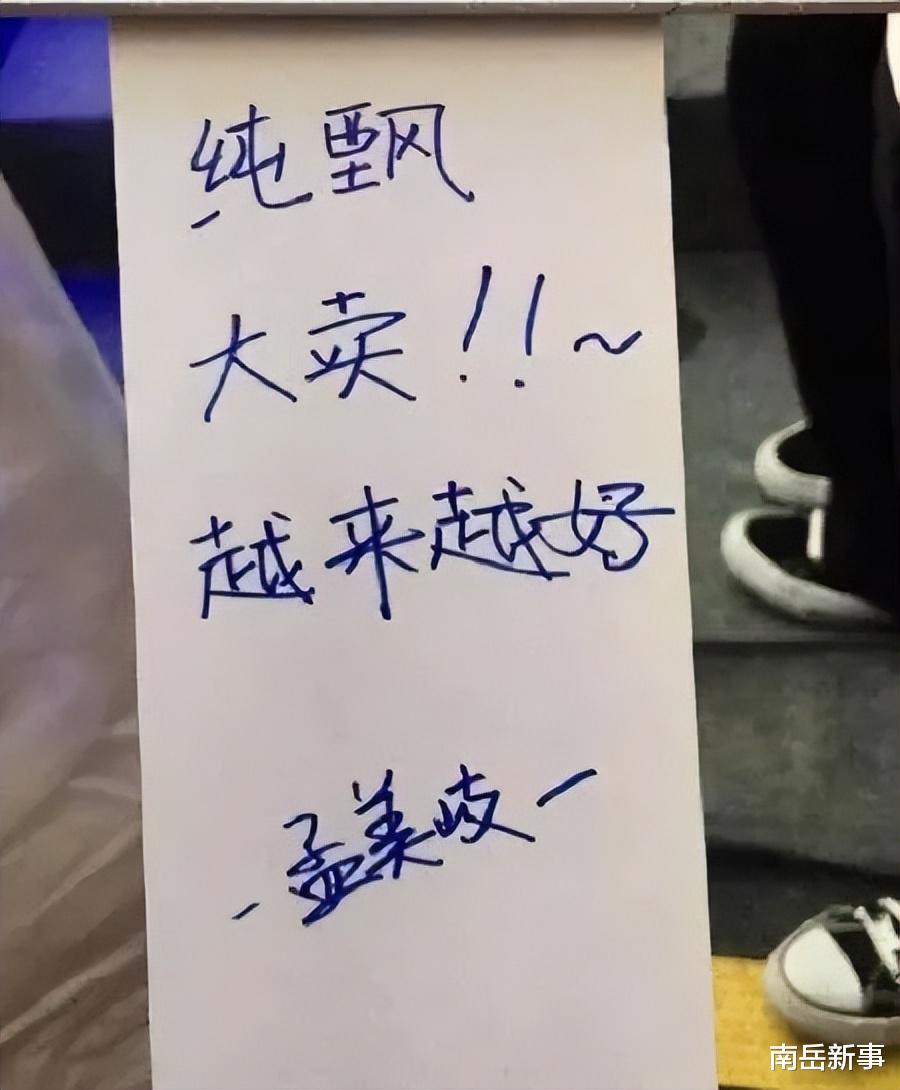 纯飘
大卖!!~
越来越好
孟美岐
南岳新事